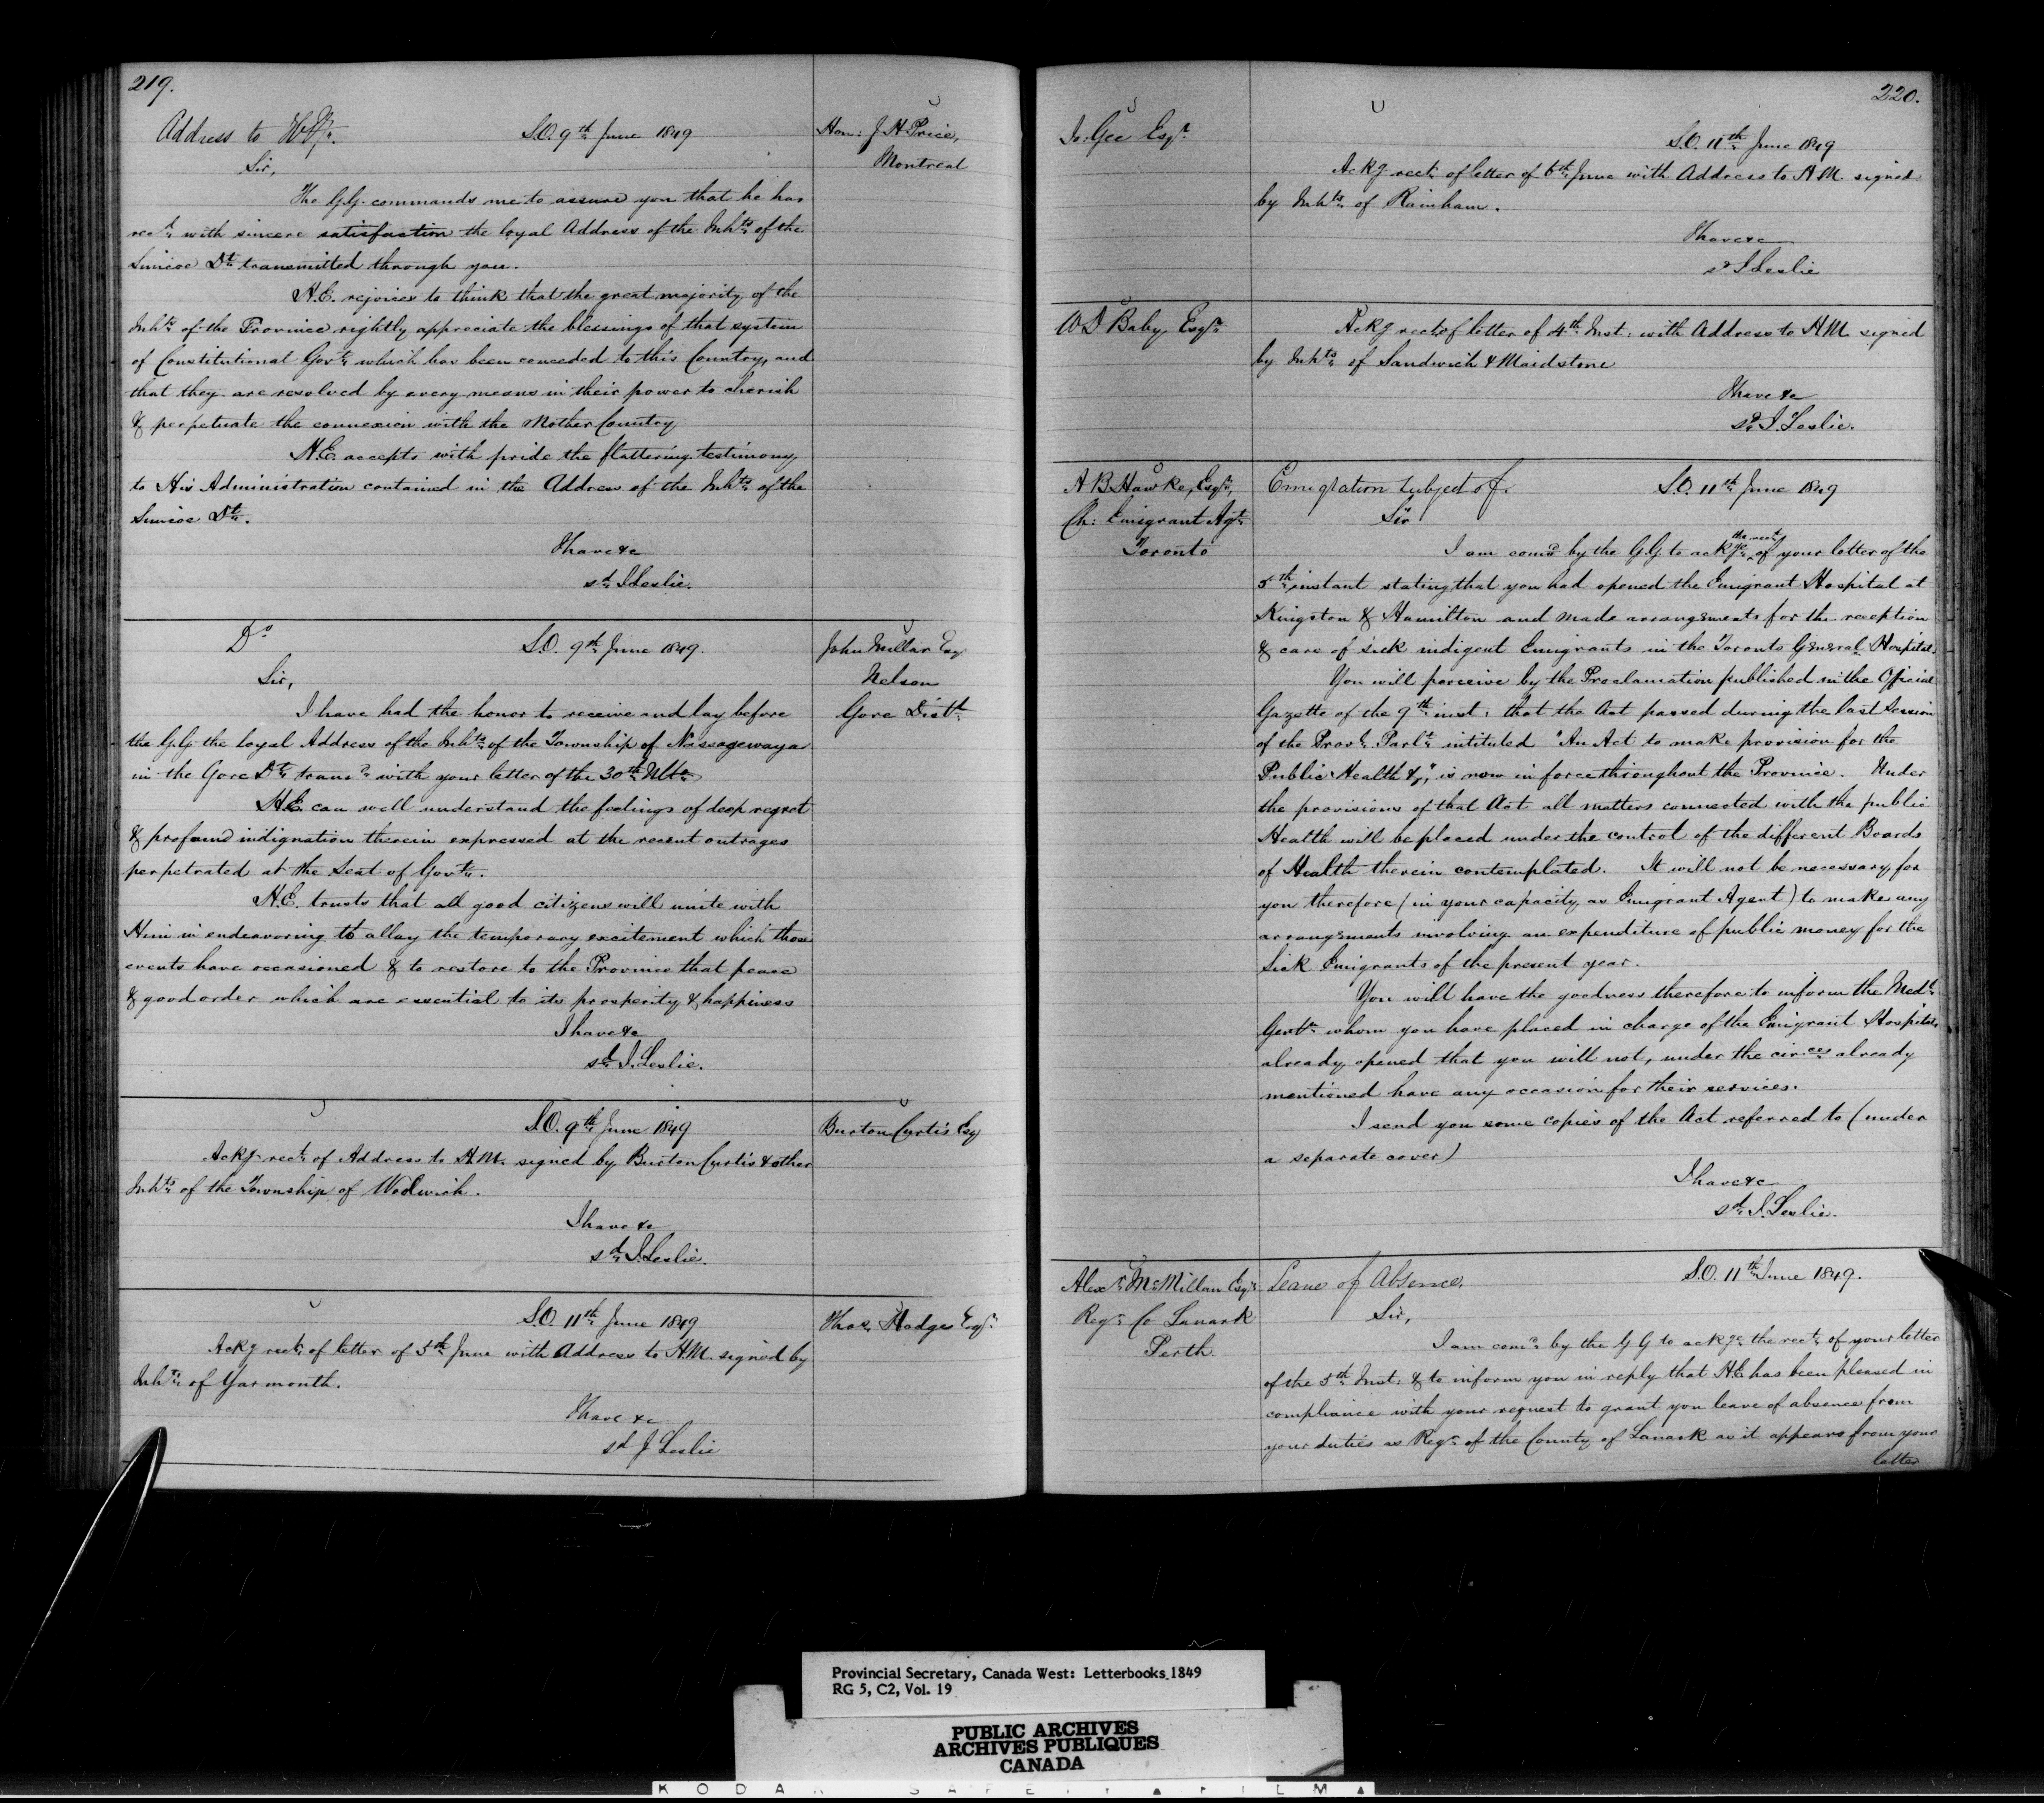 219.
Address to H.E.
S.O. 9th June 1849
Hon: J H Price,
Montreal
Sir,
The G.G. commands me to assure you that he has
recd with sincere satisfaction the loyal Address of the Inhts of the
Simcoe Dt transmitted through you.
H.E. rejoices to think that the great majority of the
Inhts of the Province rightly appreciate the blessings of that system
of Constitutional Govt which has been conceded to this Country, and
that they are resolved by every means in their power to cherish
& perpetuate the connexion with the Mother Country
H.E. accepts with pride the flattering testimony
to His Administration contained in the Address of the Inhts of the
Simcoe Dt.
I have &c
sd J. Leslie.
Do
S.O. 9th June 1849.
John Millar Esq
Nelson
Gore Distt
Sir,
I have had the honor to receive and lay before
the G.G. the loyal Address of the Inhts of the Township of Nassagewaya
in the Gore Dt transd with your letter of the 30th Ulto
H.E. can well understand the feelings of deep regret
& profound indignation therein expressed at the recent outrages
perpetrated at the Seat of Govt.
H.E. trusts that all good citizens will unite with
Him in endeavoring to allay the temporary excitement which those
events have occasioned & to restore to the Province that peace
& good order which are essential to its prosperity & happiness
I have &c
sd J. Leslie.
S.O. 9th June 1849
Burton Curtis Esq
Ackg rect of Address to H.M. signed by Burton Curtis & other
Inhts of the Township of Woolwich.
I have &c
sd J. Leslie.
S.O. 11th June 1849
Thos Hodge Esqr
Ackg rect of letter of 5th June with Address to H.M. signed by
Inhts of Yarmouth.
I have &c
sd J Leslie
220.
Js. Gee Esqr
S.O. 11th June 1849
Ackg rect of letter of 6th June with Address to H.M. signed
by Inhts of Rainham.
I have &c
sd J Leslie
W D Baby, Esqr
Ackg rect of letter of 4th Inst. with Address to H.M. signed
by Inhts of Sandwich & Maidstone
I have &c
sd J. Leslie.
A B Hawke, Esqr,
Ch: Emigrant Agt
Toronto
Emigration subject of.
S.O. 11th June 1849
Sir
I am comd by the G.G. to ackge the rect of your letter of the
5th instant stating that you had opened the Emigrant Hospital at
Kingston & Hamilton and made arrangements for the reception
& care of sick indigent Emigrants in the Toronto General Hospital.
You will perceive by the Proclamation published in the Official
Gazette of the 9th inst. that the Act passed during the last Session
of the Provl Parlt intituled "An Act to make provision for the
Public Health &c" is now in force throughout the Province. Under
the provisions of that Act all matters connected with the public
Health will be placed under the control of the different Boards
of Health therein contemplated. It will not be necessary for
you therefore (in your capacity as Emigrant Agent) to make any
arrangements involving an expenditure of public money for the
Sick Emigrants of the present year.
You will have the goodness therefore to inform the Medl
Gentn whom you have placed in charge of the Emigrant Hospitals
already opened that you will not, under the circes already
mentioned have any occasion for their services.
I send you some copies of the Act referred to (under
a separate cover)
I have &c
sd J. Leslie.
Alexr McMillan Esqr
Regr Co Lanark
Perth
Leave of Absence.
S.O. 11th June 1849.
Sir,
I am comd by the G G to ackge the rect of your letter
of the 5th Inst. & to inform you in reply that H.E. has been pleased in
compliance with your request to grant you leave of absence from
your duties as Regr of the County of Lanark as it appears from your
letter
Provincial Secretary, Canada West: Letterbooks 1849
RG 5, C2, Vol. 19
PUBLIC ARCHIVES
ARCHIVES PUBLIQUES
CANADA
KODAK SAFETY FILM